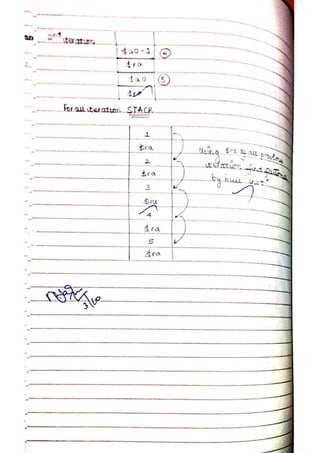 2nd iteration
$a0-1 4
$ra
$a0 5
$ra
For all iteration STACK
1
$ra
2
$ra
3
$ra
4
$ra
5
$ra
Using $ra of all
iteration find
by mul inst
3/10